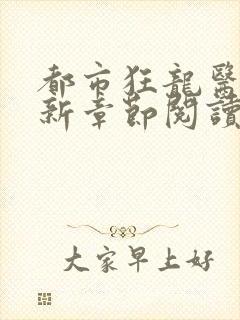 都市狂龍醫
新章節閱讀
大家早上好